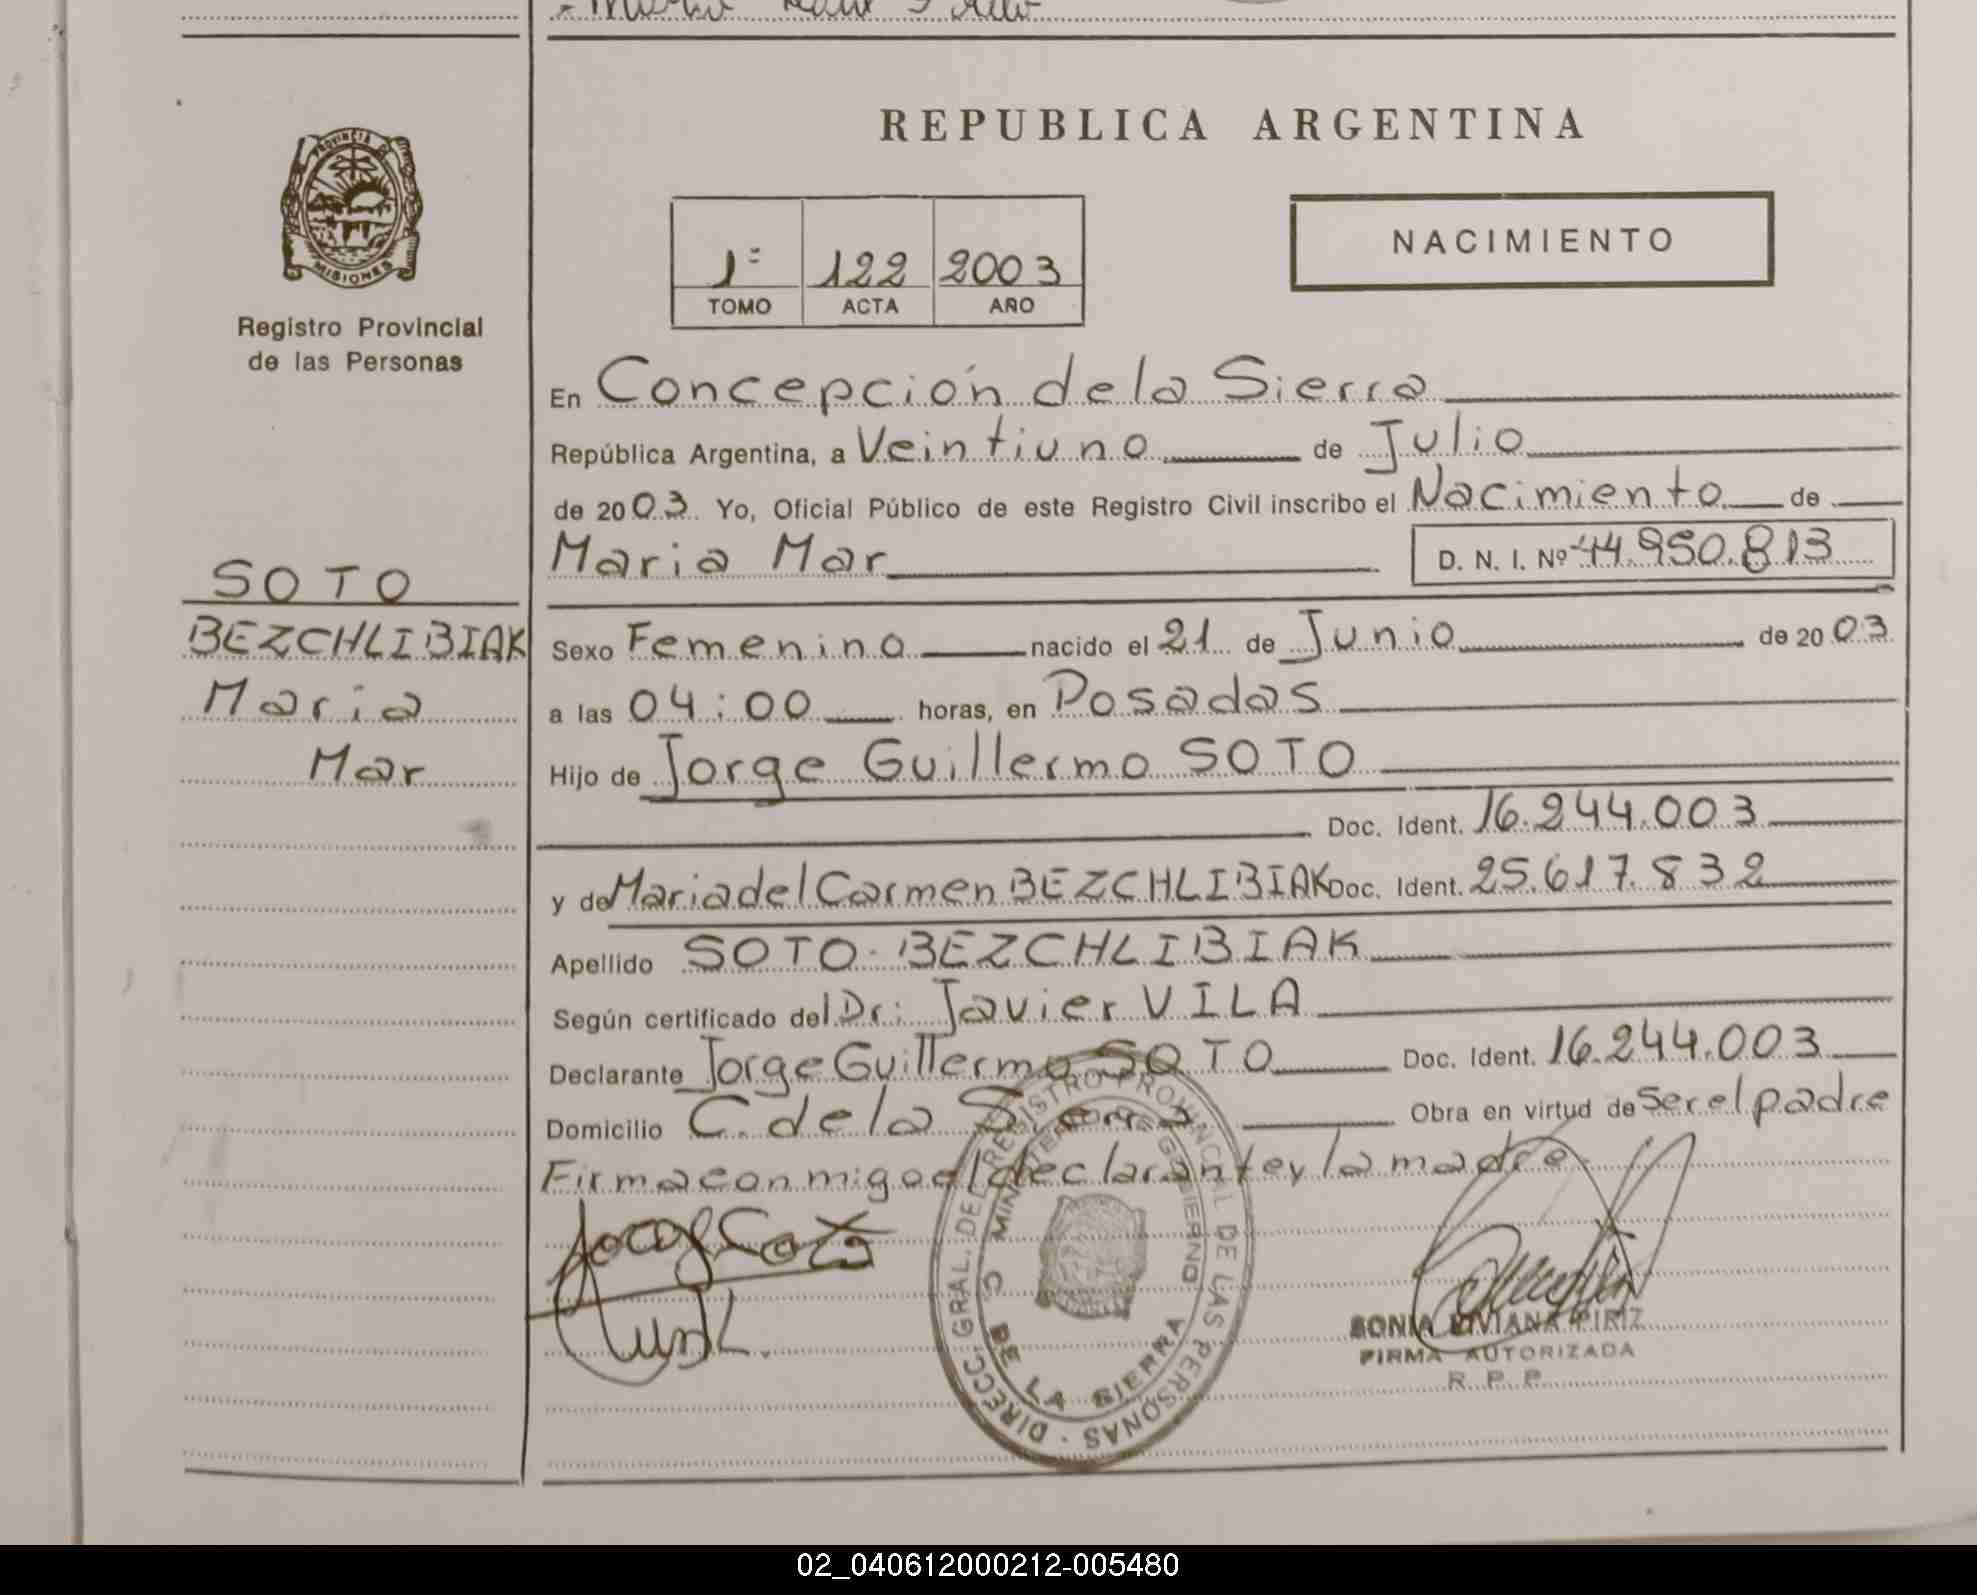 REPUBLICA ARGENTINA
PROVINCIA DE
MISIONES
Registro Provincial
de las Personas
1º 122 2003
TOMO ACTA AÑO
NACIMIENTO
En Concepción de la Sierra
República Argentina, a Veintiuno de Julio
de 2003. Yo, Oficial Público de este Registro Civil inscribo el Nacimiento de
Maria Mar D. N. I. Nº 44.950.813
SOTO
BEZCHLIBIAK
Maria
Mar
Sexo Femenino nacido el 21 de Junio de 2003
a las 04:00 horas, en Posadas
Hijo de Jorge Guillermo SOTO
Doc. Ident. 16.244.003
y de Maria del Carmen BEZCHLIBIAK Doc. Ident. 25.617.832
Apellido SOTO - BEZCHLIBIAK
Según certificado del Dr: Javier VILA
Declarante Jorge Guillermo SOTO Doc. Ident. 16.244.003
Domicilio C. de la Sierra Obra en virtud de Ser el padre
Firma conmigo el declarante y la madre
DIRECC. GRAL. DEL REGISTRO PROVINCIAL DE LAS PERSONAS
MINISTERIO DE GOBIERNO
C DE LA SIERRA
SONIA VIVIANA PIRIZ
FIRMA AUTORIZADA
R. P. P.
02_040612000212-005480